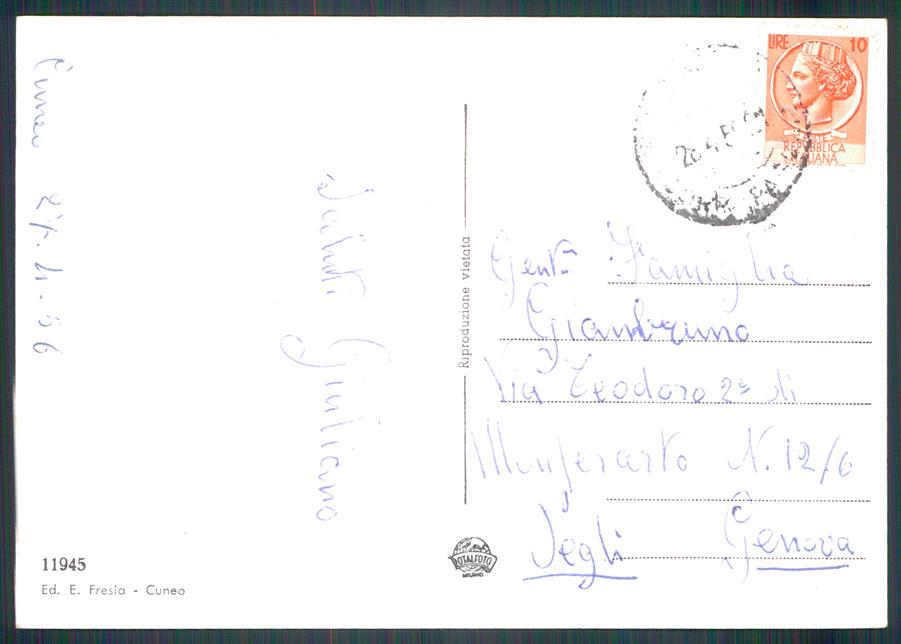 Cuneo 27.4.56
Saluti Giuliano
11945
Ed. E. Fresia - Cuneo
Riproduzione vietata
ROTALFOTO
MILANO
LIRE 10
POSTE
REPUBBLICA
ITALIANA
Gent.ma Famiglia
Giambruno
Via Teodoro 2º di
Monferrato N. 12/6
Pegli Genova